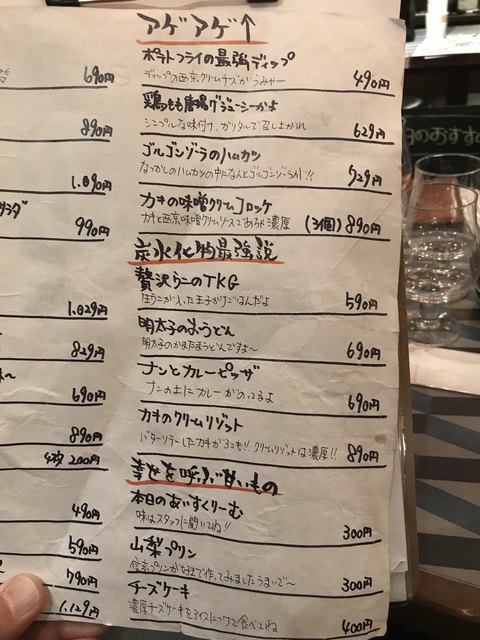 690円
890円
1.090円
サラダ
990円
1.029円
829円
690円
890円
4枚 200円
490円
590円
790円
1.129円
アゲアゲ↑
ポテトフライの最強ディップ
ディップの西京クリームチーズがうみゃー
490円
鶏もも唐揚げジューシーかよ
シンプルな味付け、ガリタルで召し上がれ
629円
ゴルゴンゾーラのハムカツ
なつかしのハムカツの中になんとゴルゴンゾーラが!!
729円
カキの味噌クリームコロッケ
カキと西京味噌クリームソースでめちゃ濃厚
(3個) 890円
炭水化物最強説
贅沢うにのTKG
生ウニが入った玉子かけごはんだよ
590円
明太子のおうどん
明太子のかまたまうどんですよ〜
690円
ナンとカレーピッザ
ナンの上にカレーがのってるよ
690円
カキのクリームリゾット
バターソテーしたカキが3つも!! クリームリゾットは濃厚!!
890円
幸せを呼ぶ甘いもの
本日のあいすくりーむ
味はスタッフに聞いてね!!
300円
山梨プリン
作ってみましたうまいで〜
300円
チーズケーキ
濃厚チーズケーキをアイスにつけて食べてね
400円
のおすすめ